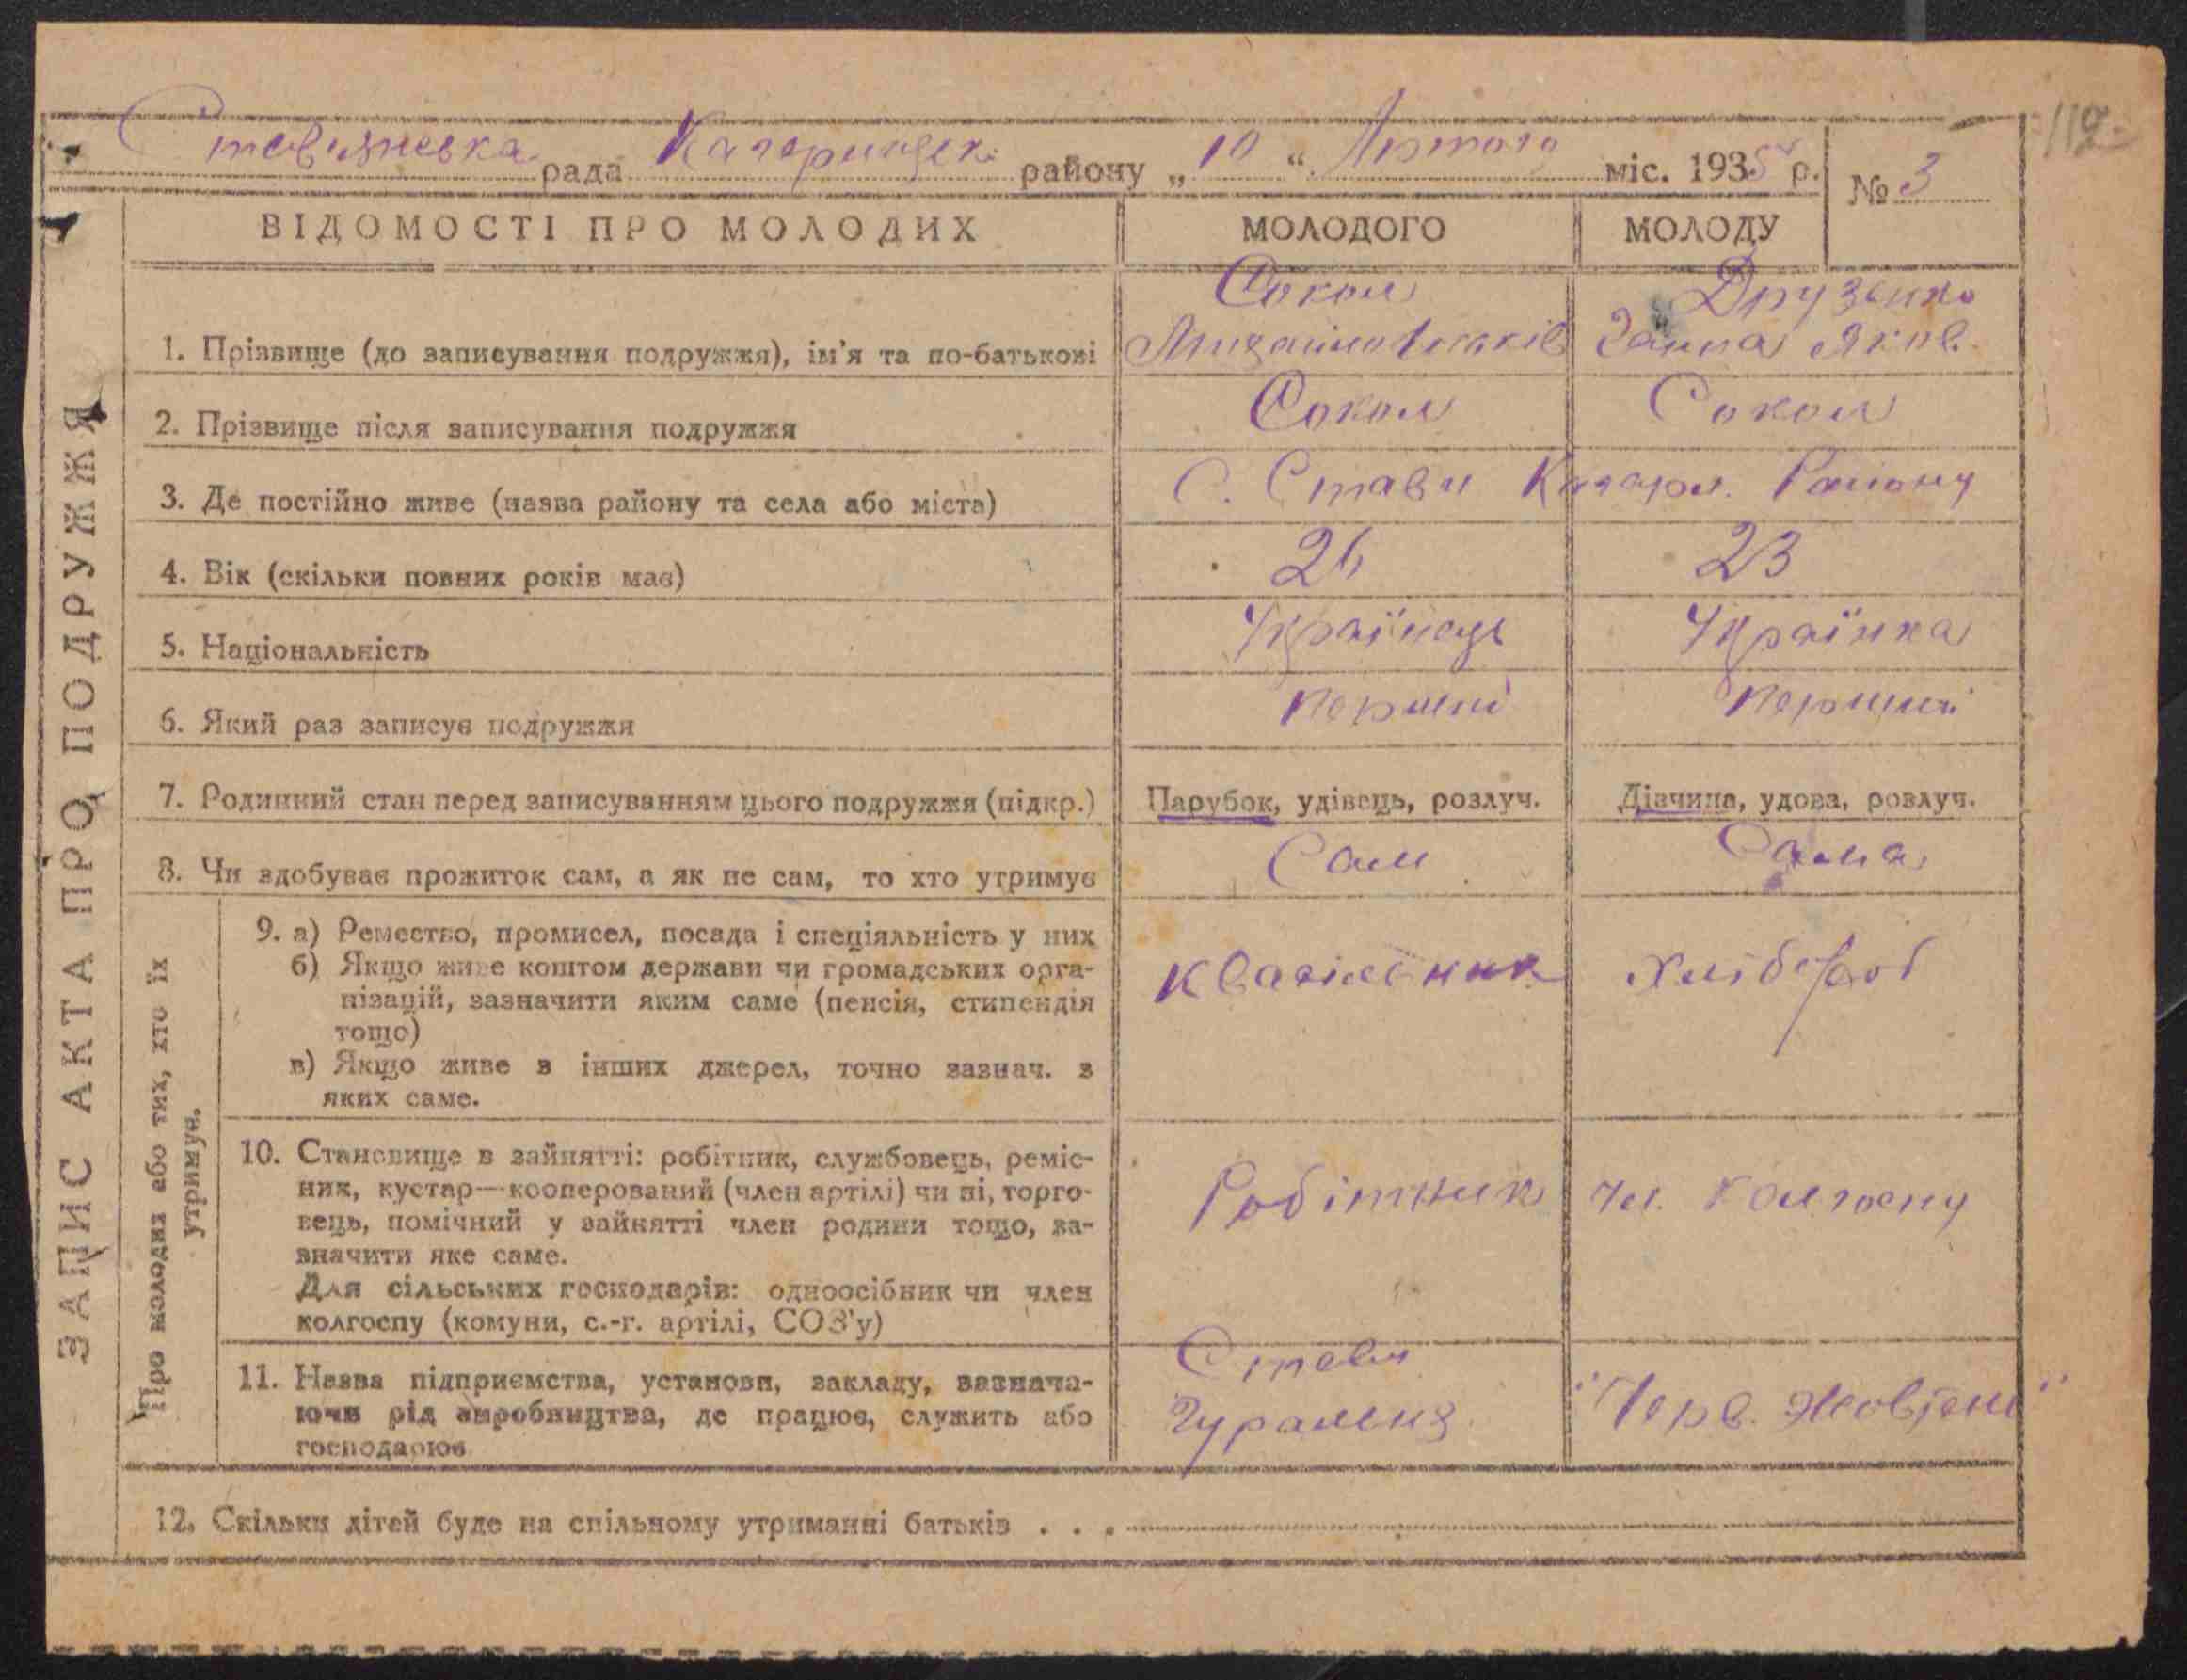 Ставянська рада Кагарлицьк. району „10“ Лютого міс. 1935 р.
№ 3
112
ЗАПИС АКТА ПРО ПОДРУЖЖЯ
ВІДОМОСТІ ПРО МОЛОДИХ МОЛОДОГО МОЛОДУ
Сокол Друзенко
1. Прізвище (до записування подружжя), ім'я та по-батькові Ганна Яков.
2. Прізвище після записування подружжя Сокол Сокол
3. Де постійно живе (назва району та села або міста) С. Стави Кагарл. Району
4. Вік (скільки повних років має) 26 23
5. Національність Українець Українка
6. Який раз записує подружжя перший перший
7. Родинний стан перед записуванням цього подружжя (підкр.) Парубок, удівець, розлуч. Дівчина, удова, розлуч.
8. Чи здобуває прожиток сам, а як не сам, то хто утримує Сам Сама
Про молодих або тих, хто їх
утримує.
9. а) Ремество, промисел, посада і спеціяльність у них
б) Якщо живе коштом держави чи громадських орга-
нізацій, зазначити яким саме (пенсія, стипендія
тощо)
в) Якщо живе з інших джерел, точно зазнач. з
яких саме.
Хлібороб
10. Становище в зайнятті: робітник, службовець, реміс-
ник, кустар—кооперований (член артілі) чи ні, торго-
вець, помічний у зайнятті член родини тощо, за-
значити яке саме.
Для сільських господарів: одноосібник чи член
колгоспу (комуни, с.-г. артілі, СОЗ'у)
Робітник чл. колгоспу
11. Назва підприємства, установи, закладу, зазнача-
ючи рід виробництва, де працює, служить або
господарює
Стави
Гуральня "Черв. Жовтень"
12. Скільки дітей буде на спільному утриманні батьків . . .